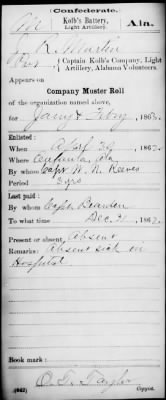 Confederate.
M Kolb's Battery, Light Artillery. Ala.
J. R. Martin
Pvt, Captain Kolb's Company, Light Artillery, Alabama Volunteers.
Appears on
Company Muster Roll
of the organization named above,
for Jany & Feby, 1863.
Enlisted:
When April 30, 1862.
Where Eufaula, Ala
By whom Capt W. N. Reeves
Period 3 yrs
Last paid:
By whom Capt Bearden
To what time Dec. 31, 1862.
Present or absent, Absent
Remarks: Absent sick in
Hospital
Book mark:
(642) O. T. Taylor
Copyist.